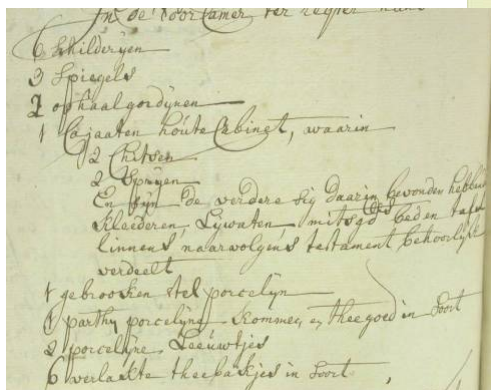 In de Voorkamer ter regter hand
6 Schilderyen
3 Spiegels
2 ophaalgordynen
1 Cajaaten houte Cabinet, waarin
2 Chitsen
2 Spreyen
En zyn de verdere sig daarin bevonden hebbende
kleederen, Lywaten, mitsgds bed en tafel
linnens naarvolgens testament behoorlyk
verdeelt
1 gebrooken stel porcelyn
1 parthy porcelyne kommen en theegoed in soort
2 porcelyne Leeuwtjes
6 verlakte theebakjes in soort